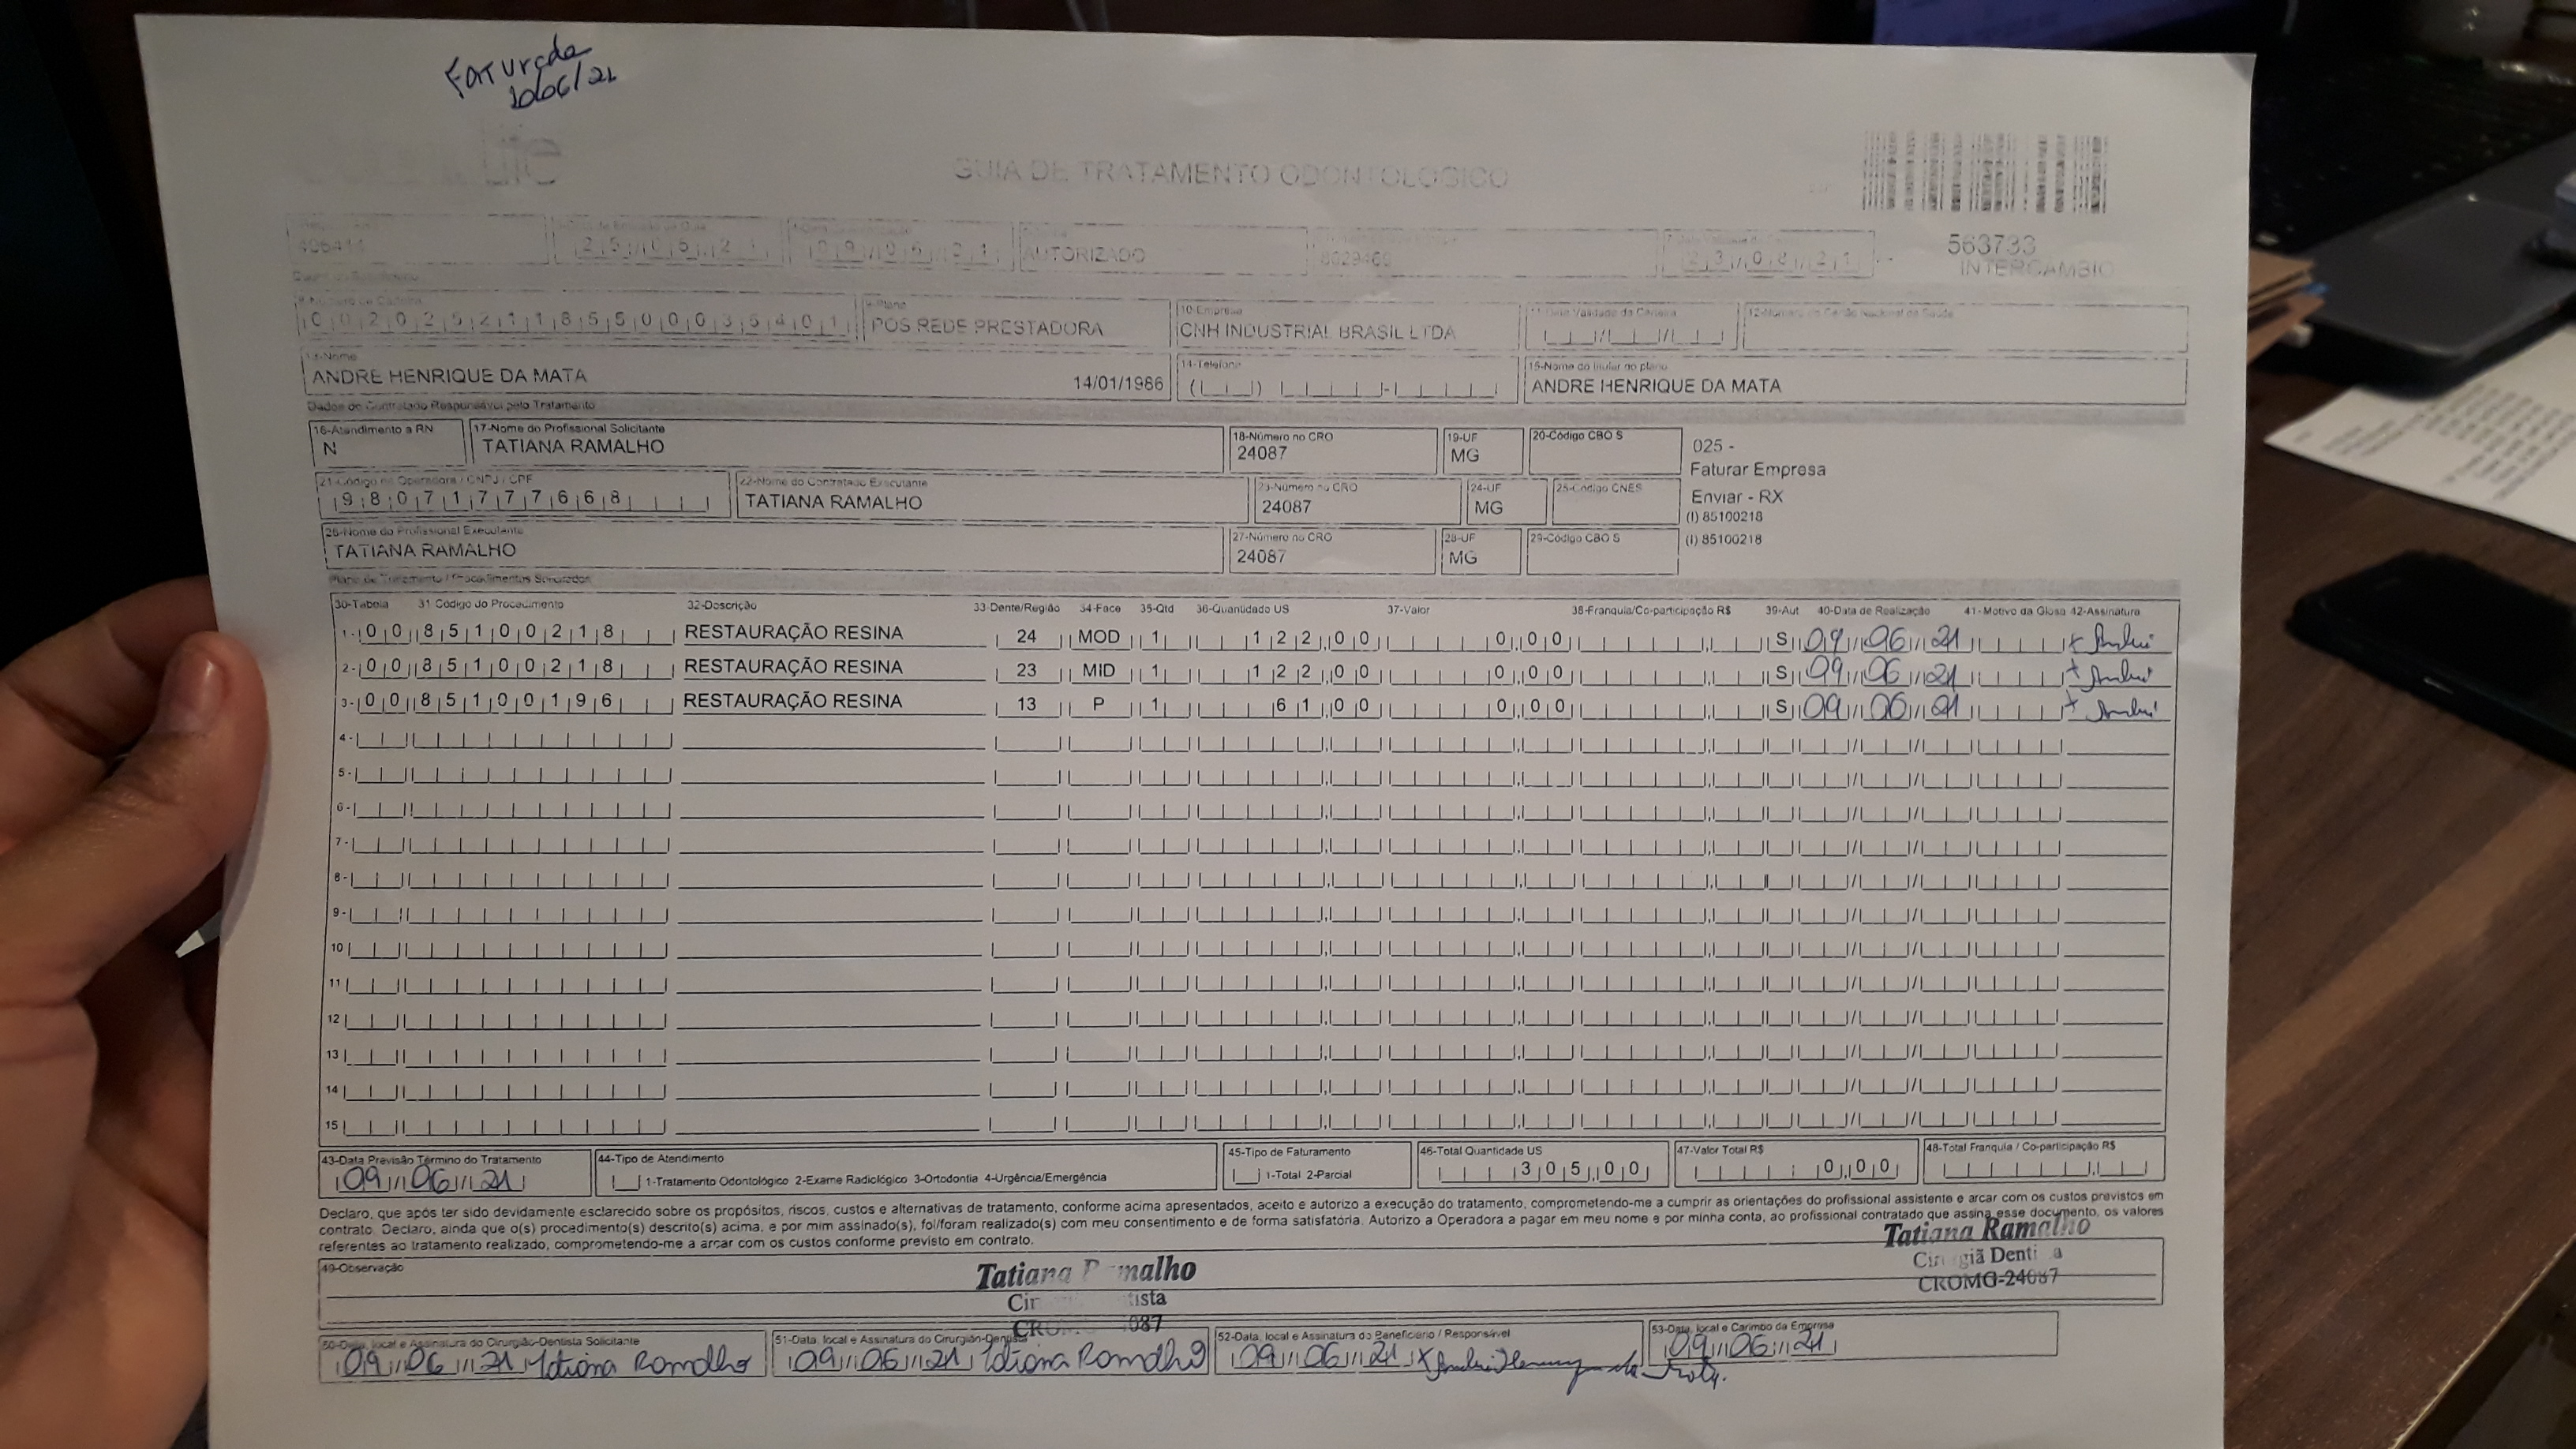 Faturada
10/06/21
GUIA DE TRATAMENTO ODONTOLOGICO
AUTORIZADO
563733
INTERCAMBIO
8-Número da Carteira
0 0 2 0 2 5 2 1 1 8 5 5 0 0 0 3 5 4 0 1
9-Plano
POS REDE PRESTADORA
10-Empresa
CNH INDUSTRIAL BRASIL LTDA
11-Data Validade da Carteira
12-Número do Cartão Nacional de Saúde
13-Nome
ANDRE HENRIQUE DA MATA 14/01/1986
14-Telefone
15-Nome do titular do plano
ANDRE HENRIQUE DA MATA
Dados do Contratado Responsável pelo Tratamento
16-Atendimento a RN
N
17-Nome do Profissional Solicitante
TATIANA RAMALHO
18-Número no CRO
24087
19-UF
MG
20-Código CBO S
025 -
Faturar Empresa
Enviar - RX
(I) 85100218
(I) 85100218
21-Código na Operadora / CNPJ / CPF
9 8 0 7 1 7 7 7 6 6 8
22-Nome do Contratado Executante
TATIANA RAMALHO
23-Número no CRO
24087
24-UF
MG
25-Código CNES
26-Nome do Profissional Executante
TATIANA RAMALHO
27-Número no CRO
24087
28-UF
MG
29-Código CBO S
Plano de Tratamento / Procedimentos Solicitados
30-Tabela 31 Código do Procedimento 32-Descrição 33-Dente/Região 34-Face 35-Qtd 36-Quantidade US 37-Valor 38-Franquia/Co-participação R$ 39-Aut 40-Data de Realização 41-Motivo da Glosa 42-Assinatura
1- 0 0 8 5 1 0 0 2 1 8 RESTAURAÇÃO RESINA 24 MOD 1 1 2 2 , 0 0 0 , 0 0 S 09/06/21 x André
2- 0 0 8 5 1 0 0 2 1 8 RESTAURAÇÃO RESINA 23 MID 1 1 2 2 , 0 0 0 , 0 0 S 09/06/21 x André
3- 0 0 8 5 1 0 0 1 9 6 RESTAURAÇÃO RESINA 13 P 1 6 1 , 0 0 0 , 0 0 S 09/06/21 x André
4-
5-
6-
7-
8-
9-
10
11
12
13
14
15
43-Data Previsão Término do Tratamento
09/06/21
44-Tipo de Atendimento
1-Tratamento Odontológico 2-Exame Radiológico 3-Ortodontia 4-Urgência/Emergência
45-Tipo de Faturamento
1-Total 2-Parcial
46-Total Quantidade US
3 0 5 , 0 0
47-Valor Total R$
0 , 0 0
48-Total Franquia / Co-participação R$
Declaro, que após ter sido devidamente esclarecido sobre os propósitos, riscos, custos e alternativas de tratamento, conforme acima apresentados, aceito e autorizo a execução do tratamento, comprometendo-me a cumprir as orientações do profissional assistente e arcar com os custos previstos em
contrato. Declaro, ainda que o(s) procedimento(s) descrito(s) acima, e por mim assinado(s), foi/foram realizado(s) com meu consentimento e de forma satisfatória. Autorizo a Operadora a pagar em meu nome e por minha conta, ao profissional contratado que assina esse documento, os valores
referentes ao tratamento realizado, comprometendo-me a arcar com os custos conforme previsto em contrato.
Tatiana Ramalho
Cirurgiã Dentista
CROMG-24087
49-Observação
Tatiana Ramalho
50-Data, local e Assinatura do Cirurgião-Dentista Solicitante
09/06/21 Tatiana Ramalho
51-Data, local e Assinatura do Cirurgião-Dentista
09/06/21 Tatiana Ramalho
52-Data, local e Assinatura do Beneficiário / Responsável
09/06/21 x André Henrique da Mata.
53-Data, local e Carimbo da Empresa
09/06/21